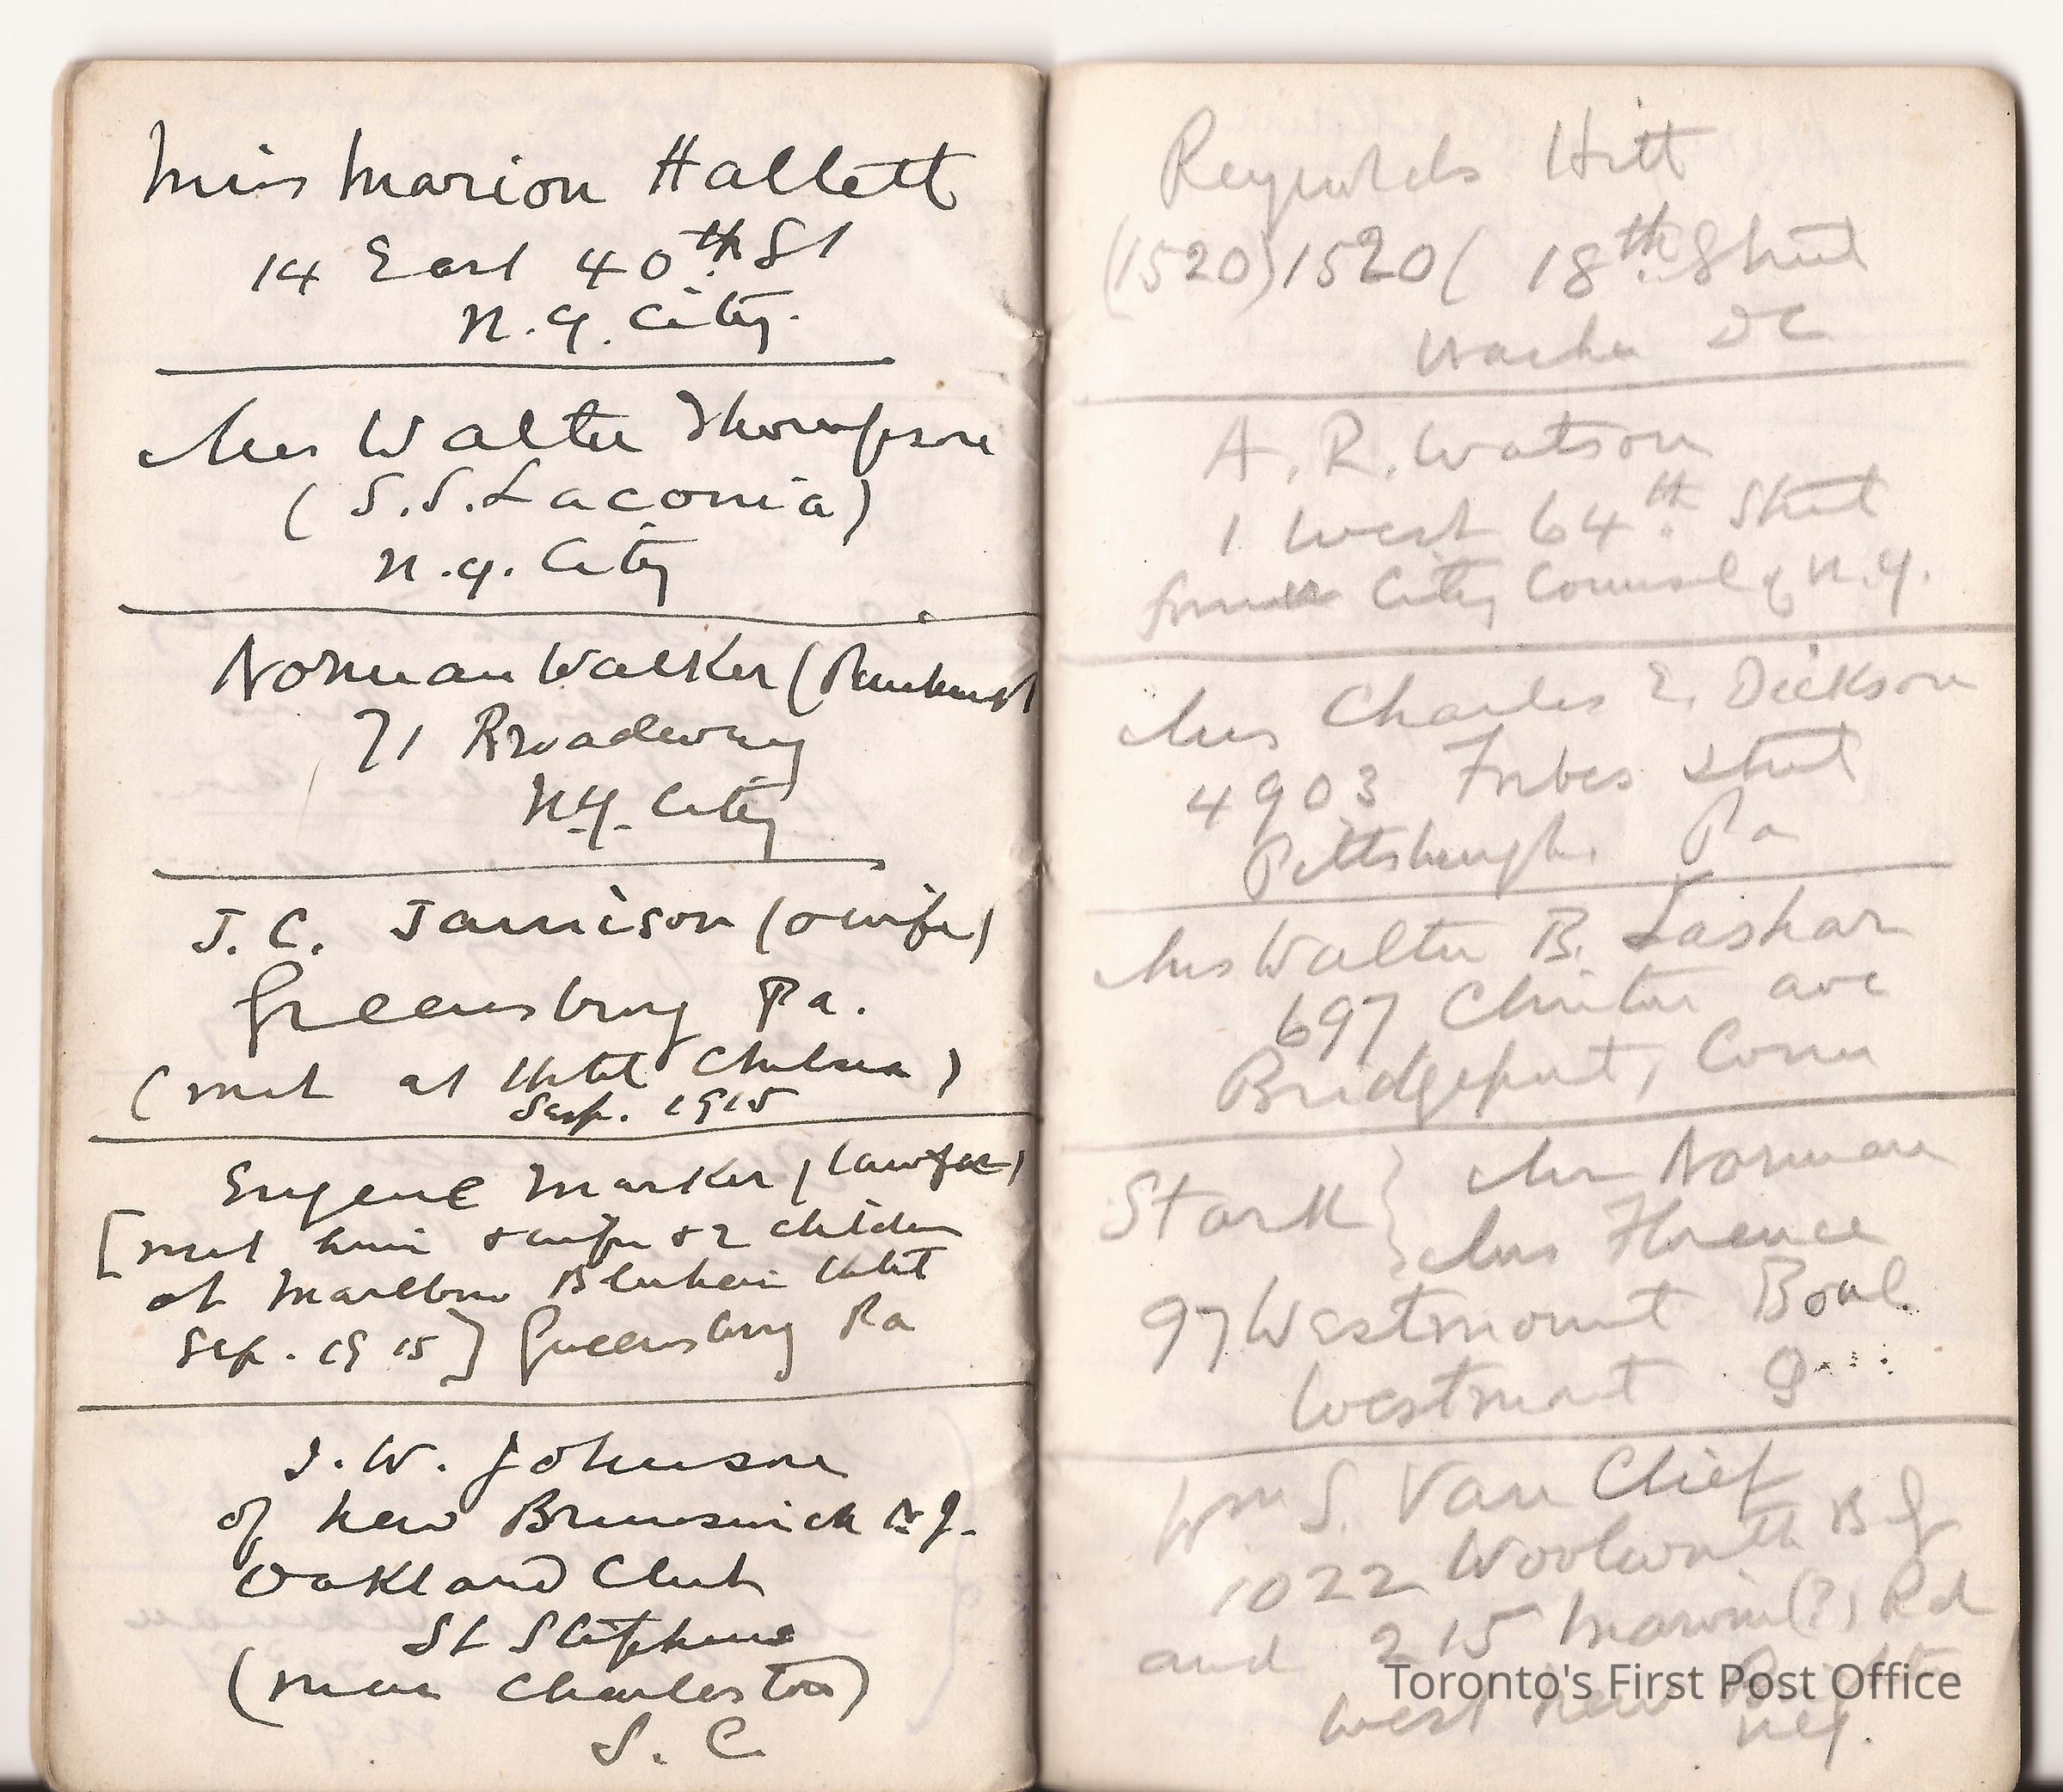 Miss Marion Hallett
14 East 40th St
N.Y. City.
Mrs Walter Thompson
(S.S. Laconia)
N.Y. City
Norman Walker (Pinehurst
71 Broadway
N.Y. City
J. C. Jamison (& wife)
Greensburg Pa.
(met at Hotel Chelsea)
Sep. 1915
Eugene Marker, (lawyer)
[met him & wife & 2 children
at Marlboro Blenheim Hotel
Sep. 1915] Greensburg Pa
J. W. Johnson
of New Brunswick N.J.
Oakland Club
St Stephens
(near Charleston)
S. C
Reynolds Hitt
(1520) 1520 ( 18th Street
Washn DC
A. R. Watson
1 West 64th Street
former City Counsel of N.Y.
Mrs Charles E. Dickson
4903 Forbes Street
Pittsburgh. Pa
Mrs Walter B. Lashar
697 Clinton ave
Bridgeport, Conn
Stark } Mr Norman
Mrs Florence
97 Westmount Boul.
Westmount
Wm S. Van Clief
1022 Woolworth Bg
and 215 (?) Rd
West New
N.Y.
Toronto's First Post Office